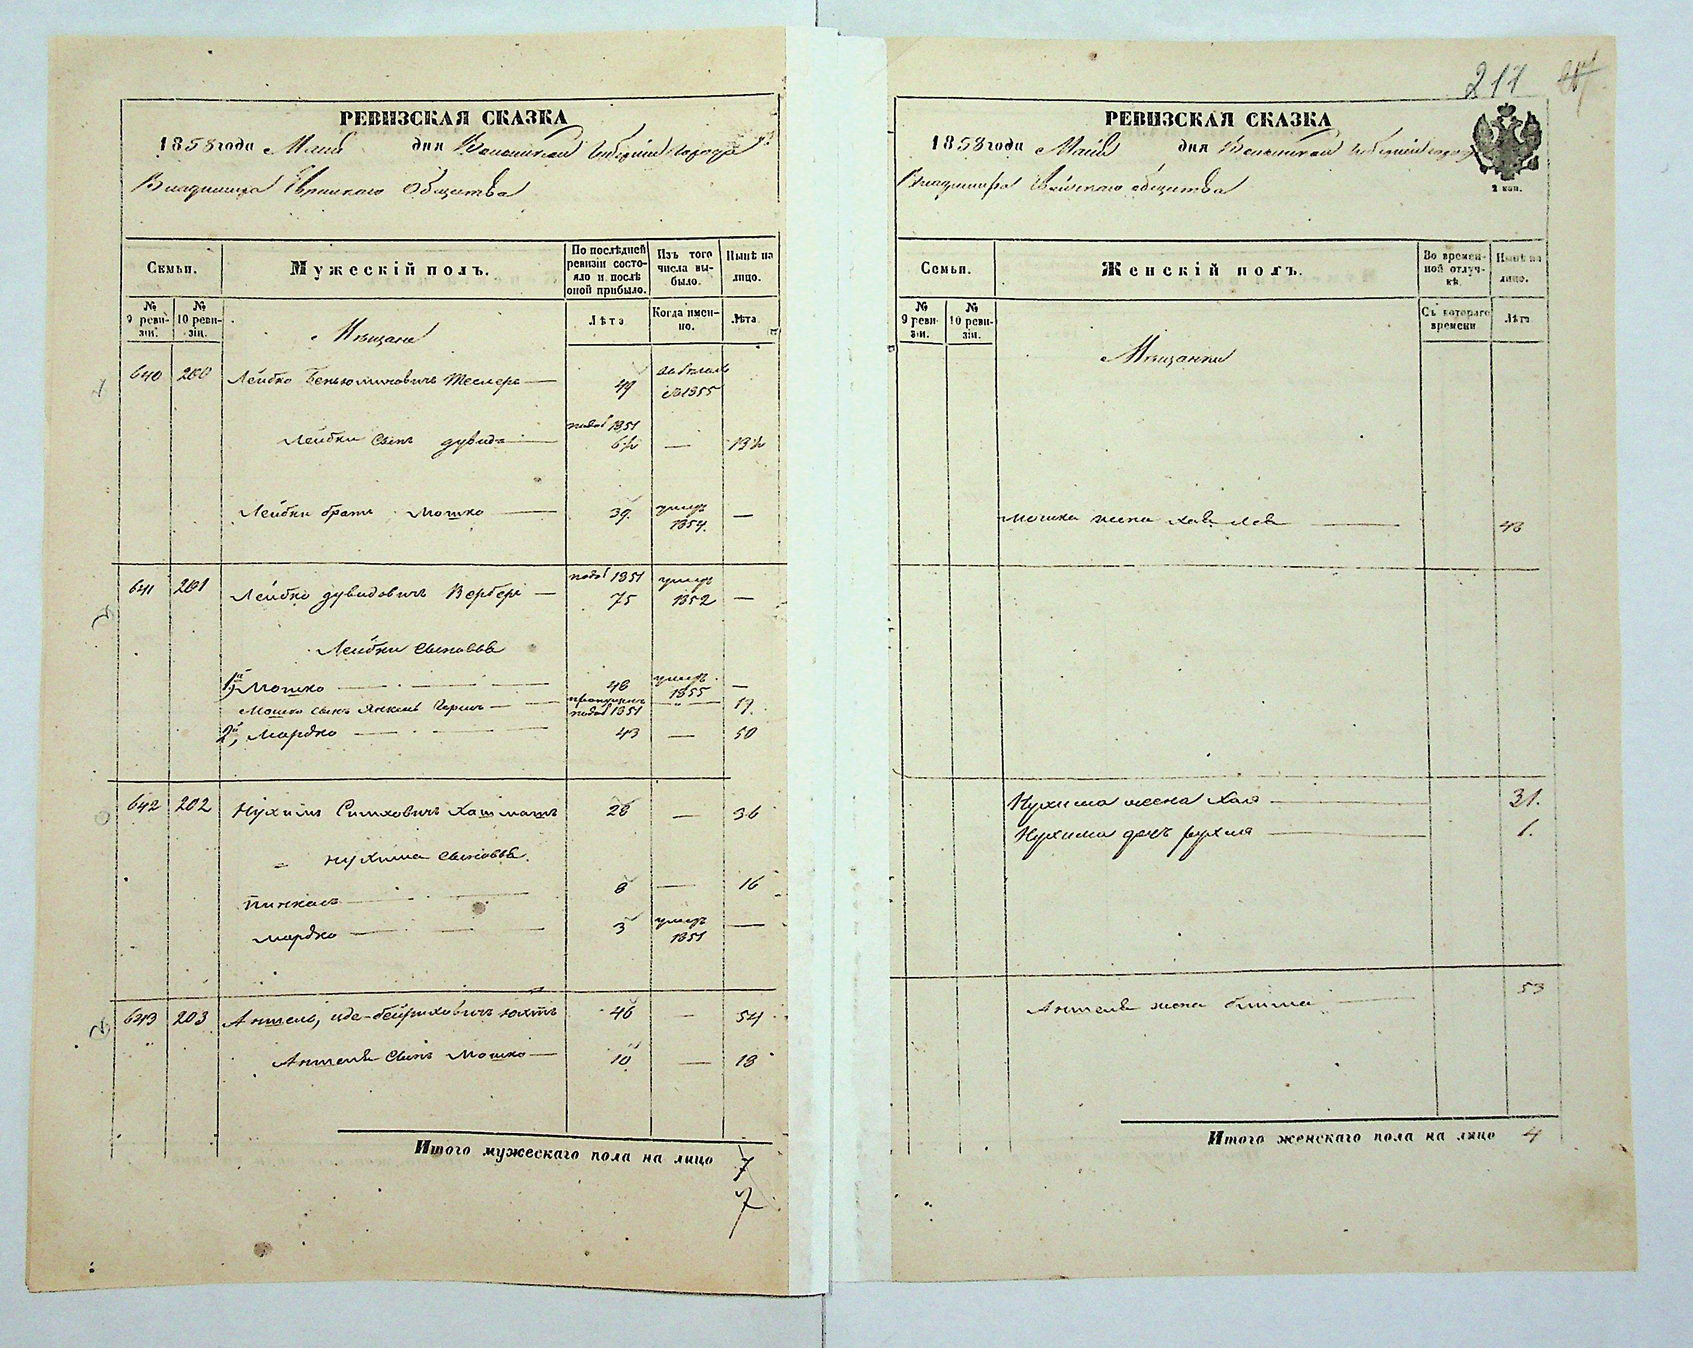 РЕВИЗСКАЯ СКАЗКА
1858 года Мая дня Волынской губернии города
Владимира Еврейского Общества
Семьи.
Мужескій полъ.
По послѣдней ревизіи состояло и послѣ оной прибыло.
Изъ того числа выбыло.
Нынѣ на лицо.
№ 9 ревизіи.
№ 10 ревизіи.
Лѣта
Когда именно.
Лѣта
Мещане
640 200 Лейбко Беньюминовичъ Теслеръ 49 1855
Лейбки сынъ Дувидъ 1851 6½ — 13½
Лейбки братъ Мошко 39. умеръ 1854. —
641 201 Лейбко Дувидовичъ Верберъ 1851 75 умеръ 1852 —
Лейбки сыновья
1й Мошко 48 умеръ 1855 —
Мошка сынъ Янкель Герсъ 1851 — 17.
2й, Мордко 43 — 50
642 202 Нухимъ Симховичъ 28 — 36
Нухима сыновья
Пинкасъ 8 — 16
Мордко 3 умеръ 1851 —
643 203 46 — 54
сынъ Мошко 10 — 18
Итого мужескаго пола на лицо 7
7
211
РЕВИЗСКАЯ СКАЗКА
1858 года Мая дня Волынской губерніи города
Владимира Еврейскаго общества
2 коп.
Семьи.
Женскій полъ.
Во временной отлучкѣ.
Нынѣ на лицо.
№ 9 ревизіи.
№ 10 ревизіи.
Съ котораго времени
Лѣта
Мещанки
Мошка жена Хая 48
Нухима жена Хая 31.
Нухима дочь Рухля 1.
жена 53
Итого женскаго пола на лицо 4